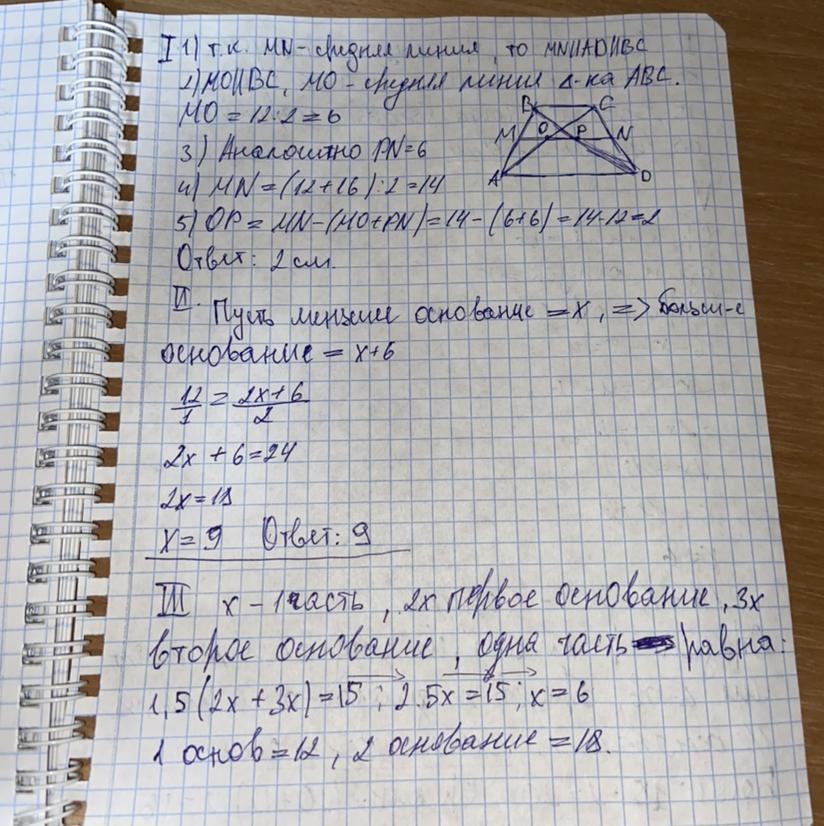 I 1) т.к. MN - средняя линия, то MN||AD||BC
2) MO||BC, MO - средняя линия Δ-ка ABC.
MO = 12:2 = 6
B C
M O P N
A D
3) Аналогично PN = 6
4) MN = (12+16):2 = 14
5) OP = MN - (MO+PN) = 14 - (6+6) = 14-12 = 2
Ответ: 2 см.
II. Пусть меньшее основание = x, => больш-е
основание = x+6
12/1 = 2x+6/2
2x + 6 = 24
2x = 18
x = 9 Ответ: 9
III x - 1 часть, 2x первое основание, 3x
второе основание, одна часть равна:
1,5(2x + 3x) = 15; 2.5x = 15; x = 6
1 основ = 12, 2 основание = 18.